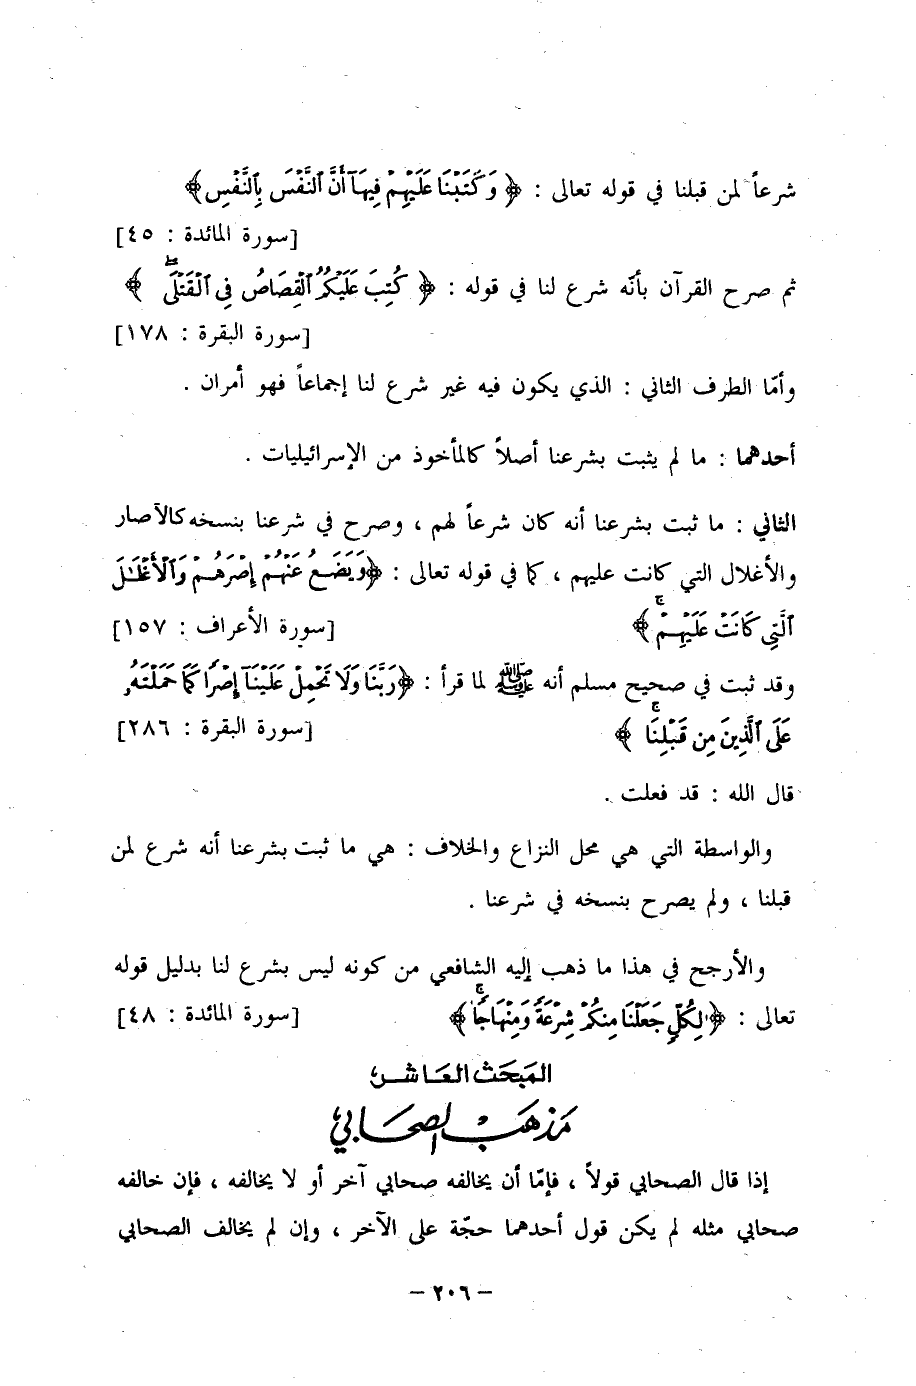 شرعاً لمن قبلنا في قوله تعالى : ﴿ وَكَتَبْنَا عَلَيْهِمْ فِيهَآ أَنَّ ٱلنَّفْسَ بِٱلنَّفْسِ ﴾
[سورة المائدة : ٤٥]
ثم صرح القرآن بأنّه شرع لنا في قوله : ﴿ كُتِبَ عَلَيْكُمُ ٱلْقِصَاصُ فِى ٱلْقَتْلَىۖ ﴾
[سورة البقرة : ١٧٨]
وأمّا الطرف الثاني : الذي يكون فيه غير شرع لنا إجماعاً فهو أمران .
أحدهما : ما لم يثبت بشرعنا أصلاً كالمأخوذ من الإسرائيليات .
الثاني : ما ثبت بشرعنا أنه كان شرعاً لهم ، وصرح في شرعنا بنسخه كالآصار
والأغلال التي كانت عليهم ، كما في قوله تعالى : ﴿وَيَضَعُ عَنْهُمْ إِصْرَهُمْ وَٱلْأَغْلَٰلَ
ٱلَّتِى كَانَتْ عَلَيْهِمْۚ ﴾ [سورة الأعراف : ١٥٧]
وقد ثبت في صحيح مسلم أنه ﷺ لما قرأ : ﴿رَبَّنَا وَلَا تَحْمِلْ عَلَيْنَآ إِصْرًا كَمَا حَمَلْتَهُۥ
عَلَى ٱلَّذِينَ مِن قَبْلِنَاۚ ﴾ [سورة البقرة : ٢٨٦]
قال الله : قد فعلت .
والواسطة التي هي محل النزاع والخلاف : هي ما ثبت بشرعنا أنه شرع لمن
قبلنا ، ولم يصرح بنسخه في شرعنا .
والأرجح في هذا ما ذهب إليه الشافعي من كونه ليس بشرع لنا بدليل قوله
تعالى : ﴿لِكُلٍّ جَعَلْنَا مِنكُمْ شِرْعَةً وَمِنْهَاجًاۚ ﴾ [سورة المائدة : ٤٨]
المبحث العاشر
مذهب الصحابي
إذا قال الصحابي قولاً ، فإمّا أن يخالفه صحابي آخر أو لا يخالفه ، فإن خالفه
صحابي مثله لم يكن قول أحدهما حجّة على الآخر ، وإن لم يخالف الصحابي
- ٢٠٦ -